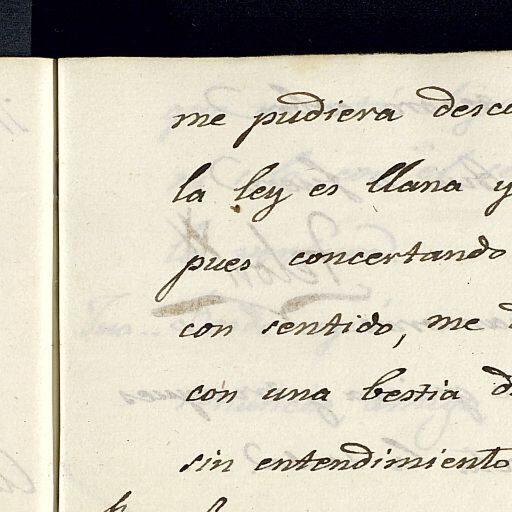 me pudiera desco
la ley es llana y
pues concertando
con sentido, me
con una bestia d
sin entendimiento